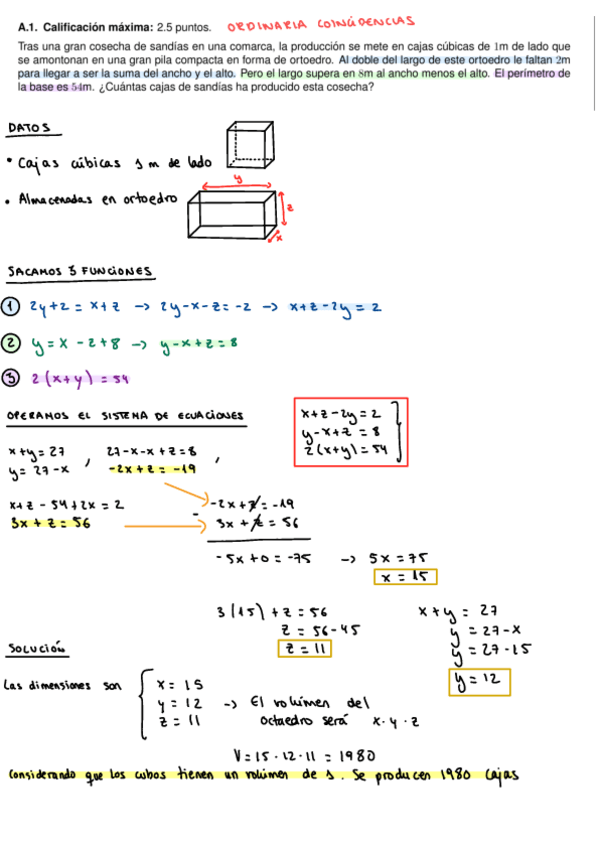 A.1. Calificación máxima: 2.5 puntos. ORDINARIA COINCIDENCIAS
Tras una gran cosecha de sandías en una comarca, la producción se mete en cajas cúbicas de 1m de lado que
se amontonan en una gran pila compacta en forma de ortoedro. Al doble del largo de este ortoedro le faltan 2m
para llegar a ser la suma del ancho y el alto. Pero el largo supera en 8m al ancho menos el alto. El perímetro de
la base es 54m. ¿Cuántas cajas de sandías ha producido esta cosecha?
DATOS
• Cajas cúbicas 1 m de lado
• Almacenadas en ortoedro
y
z
x
SACAMOS 3 FUNCIONES
1 2y+2 = x+z -> 2y-x-z=-2 -> x+z-2y=2
2 y=x-z+8 -> y-x+z=8
3 2(x+y)=54
OPERAMOS EL SISTEMA DE ECUACIONES
x+z-2y=2
y-x+z=8
2(x+y)=54
x+y=27
y=27-x , 27-x-x+z=8
-2x+z=-19 ,
x+z-54+2x=2
3x+z=56
-2x+z=-19
- 3x+z=56
-5x+0=-75 -> 5x=75
x=15
3(15)+z=56
z=56-45
z=11
x+y=27
y=27-x
y=27-15
y=12
SOLUCIÓN
Las dimensiones son
x=15
y=12 -> El volúmen del
z=11 octaedro será x·y·z
V=15·12·11=1980
Considerando que los cubos tienen un volúmen de 1. Se producen 1980 cajas